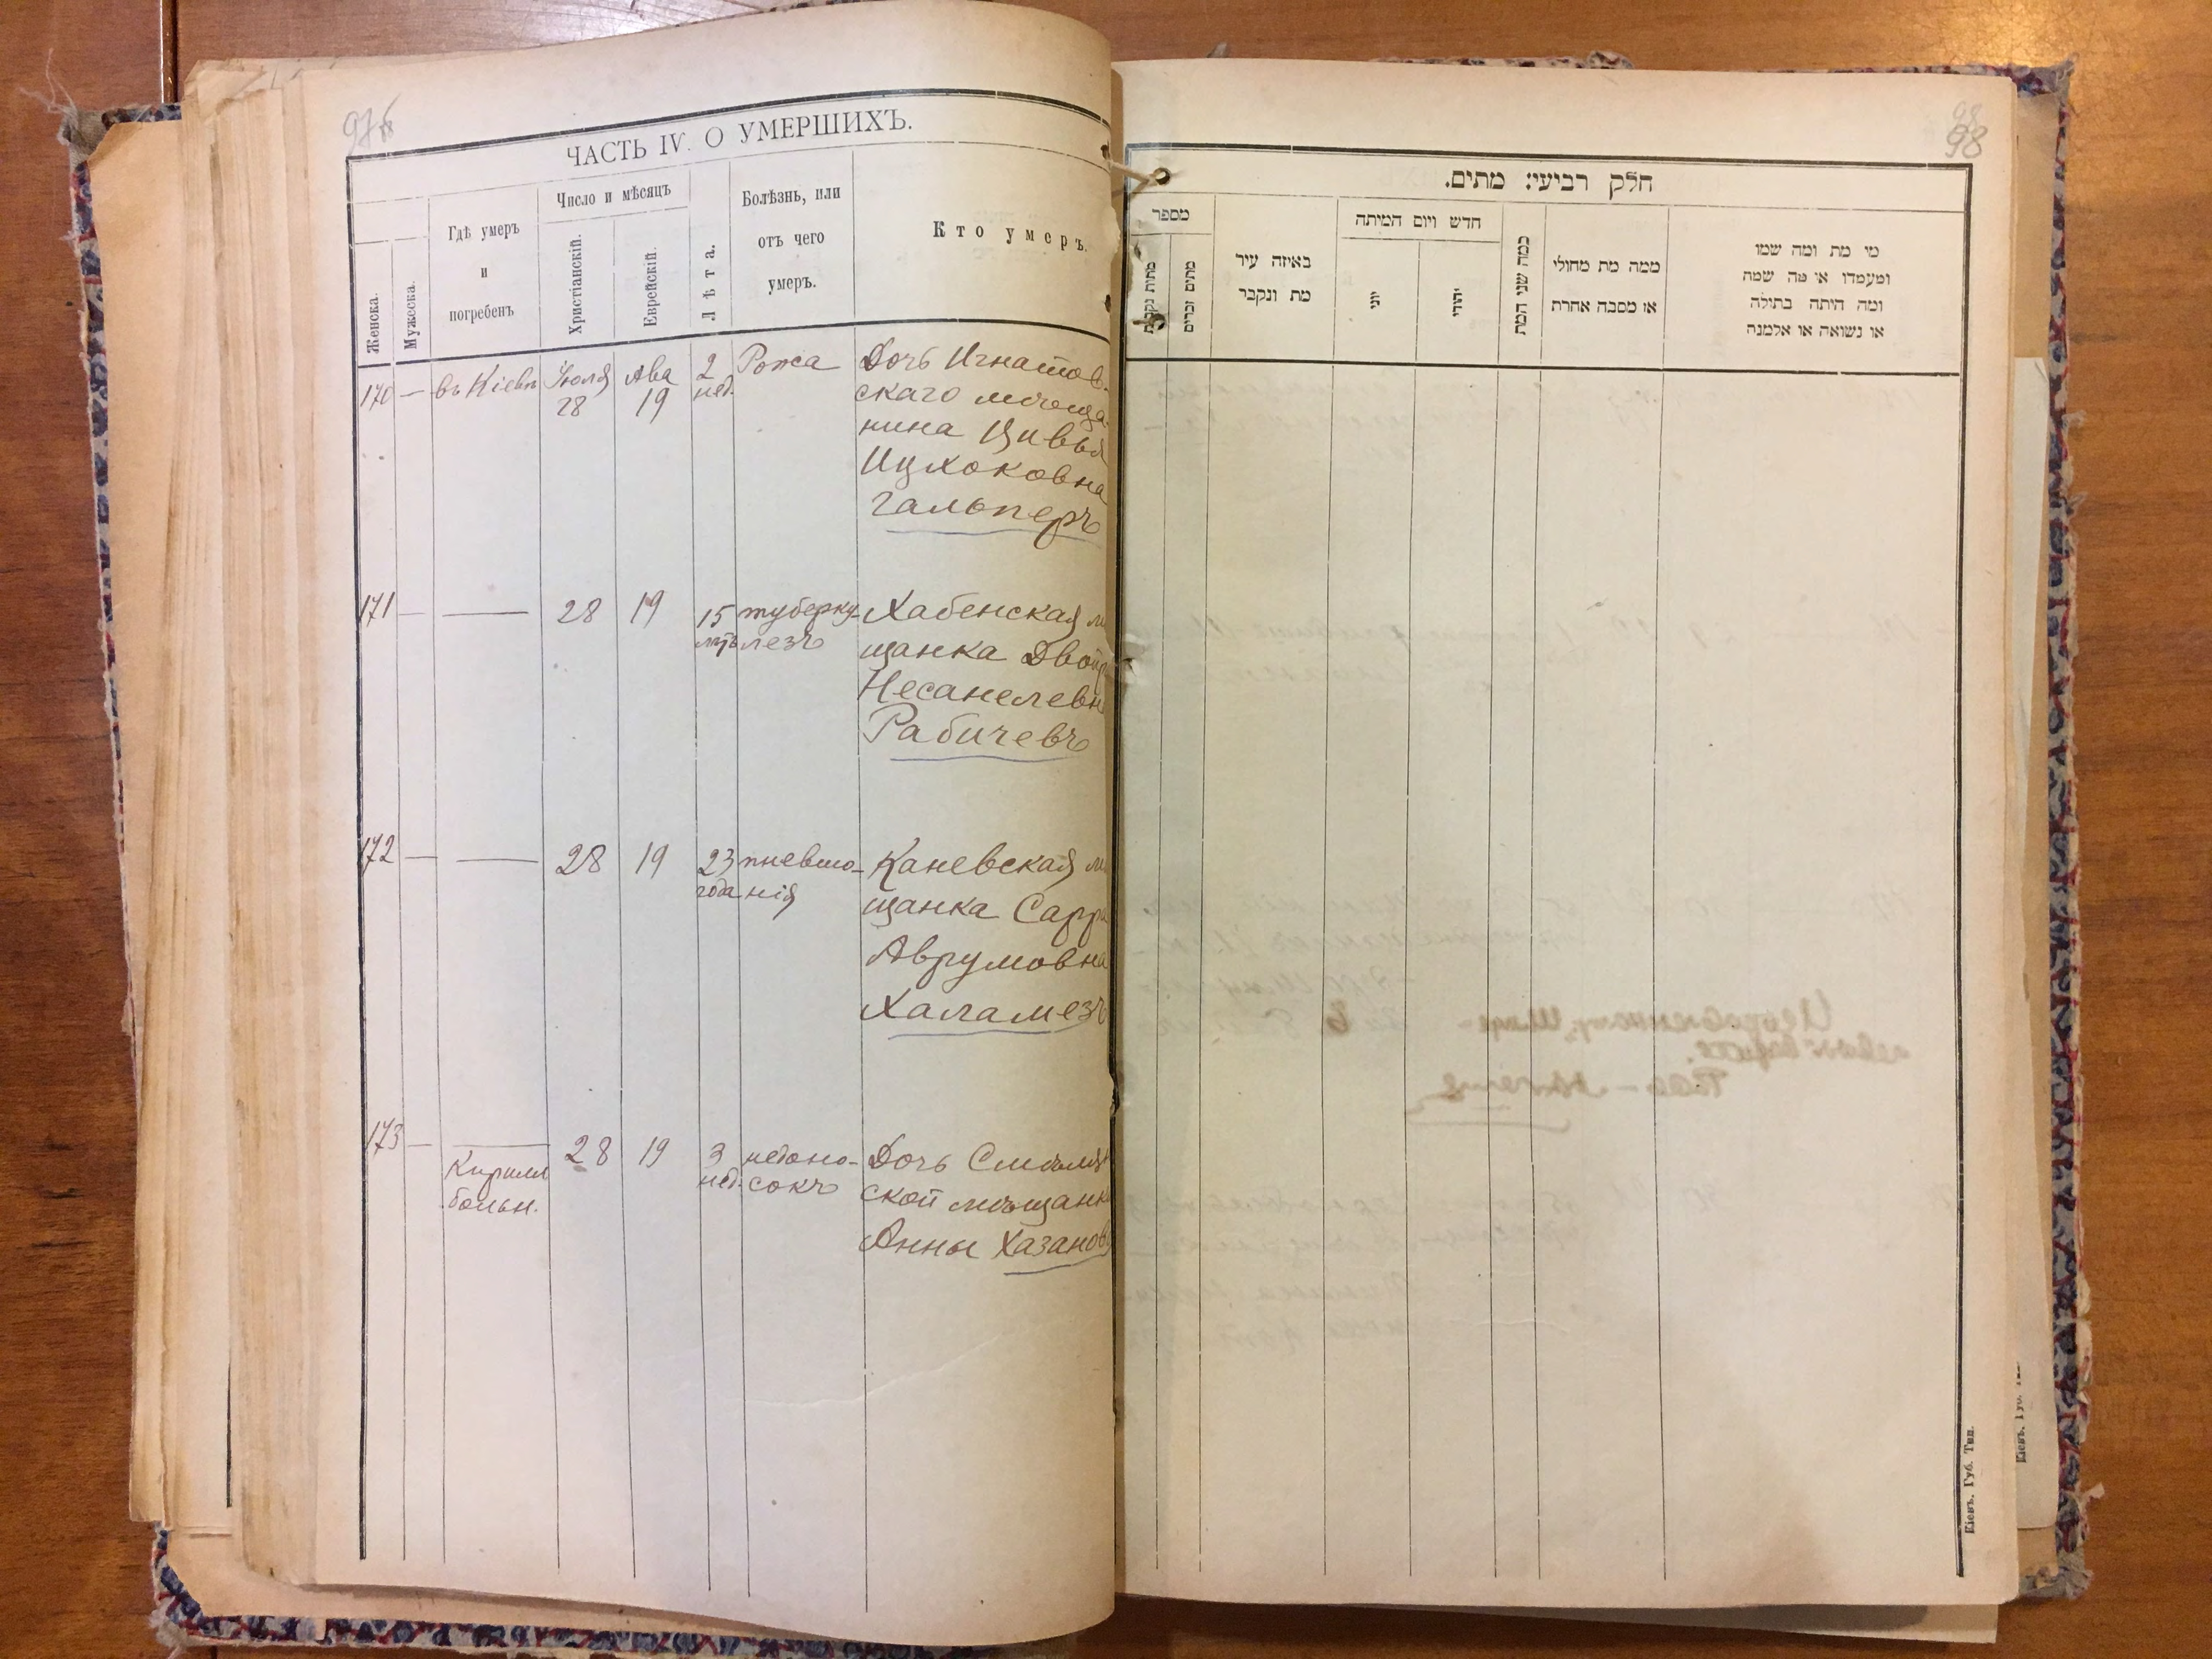 ЧАСТЬ IV. О УМЕРШИХЪ.
Женска.
Мужеска.
Гдѣ умеръ
и
погребенъ
Число и мѣсяцъ
Христіанскій.
Еврейскій.
Лѣта.
Болѣзнь, или
отъ чего
умеръ.
Кто умеръ.
170 — въ Кіевѣ Іюля 28 Ава 19 2 нед. Рожа
Дочь Игнатов-
скаго мѣща-
нина Цивья
Ицхоковна
Гальперъ
171 — — 28 19 15 лѣтъ туберку-
лезъ
Хабенская м
щанка Двойр
Несанелевн
Рабичевъ
172 — — 28 19 23 года пневмо-
нія
Каневская м
щанка Сарра
Аврумовна
Халамезъ
173 — — 28 19 3 нед. недоно-
сокъ
Кирилл
больн.
Дочь
ской мѣщанк
Анны Хазанов
98
98
חלק רביעי: מתים.
מספר
מתות נקבות
מתים זכרים
באיזה עיר
מת ונקבר
חדש ויום המיתה
יוני
יהודי
כמה שני המת
ממה מת מחולי
או מסבה אחרת
מי מת ומה שמו
ומעמדו או מה שמה
ומה היתה בתולה
או נשואה או אלמנה
Кіевъ. Губ. Тип.
Кіевъ. Губ.